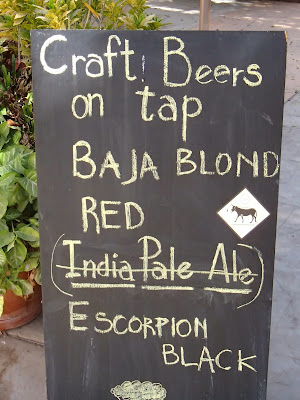 Craft Beers
on tap
BAJA BLOND
RED
(India Pale Ale)
ESCORPION
BLACK